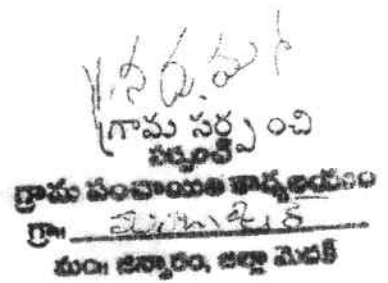 గ్రామ సర్పంచి
సర్పంచ్
గ్రామ పంచాయితి కార్యాలయం
గ్రా॥
మం॥ జిన్నారం, జిల్లా మెదక్